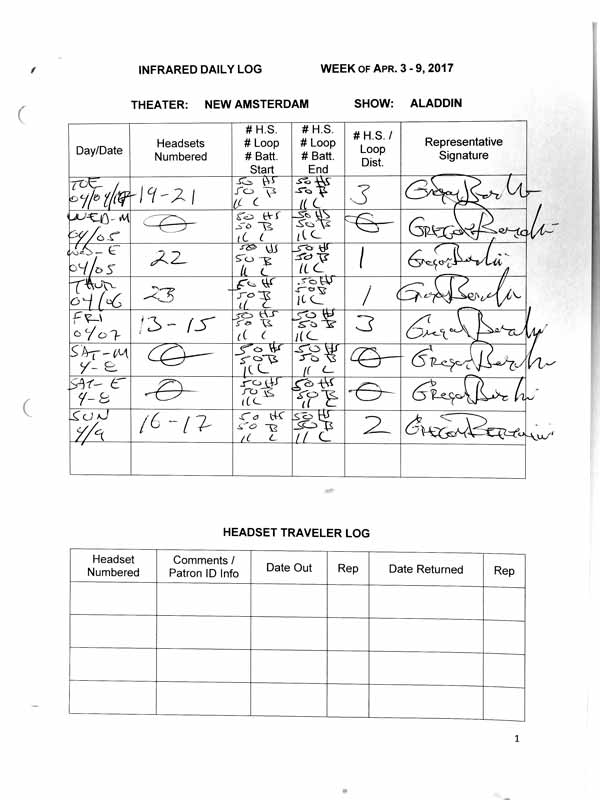 INFRARED DAILY LOG WEEK OF APR. 3 - 9, 2017
THEATER: NEW AMSTERDAM SHOW: ALADDIN
Day/Date Headsets Numbered # H.S. # Loop # Batt. Start # H.S. # Loop # Batt. End # H.S. / Loop Dist. Representative Signature
TUE 04/04/17 19-21 50 HS 50 B 11 C 50 HS 50 B 11 C 3
WED-M 04/05 0 50 HS 50 B 11 C 50 HS 50 B 11 C 0
WED-E 04/05 22 50 HS 50 B 11 C 50 HS 50 B 11 C 1
THUR 04/06 23 50 HS 50 B 11 C 50 HS 50 B 11 C 1
FRI 04/07 13-15 50 HS 50 B 11 C 50 HS 50 B 11 C 3
SAT-M 4-8 0 50 HS 50 B 11 C 50 HS 50 B 11 C 0
SAT-E 4-8 0 50 HS 50 B 11 C 50 HS 50 B 11 C 0
SUN 4/9 16-17 50 HS 50 B 11 C 50 HS 50 B 11 C 2
HEADSET TRAVELER LOG
Headset Numbered Comments / Patron ID Info Date Out Rep Date Returned Rep
1